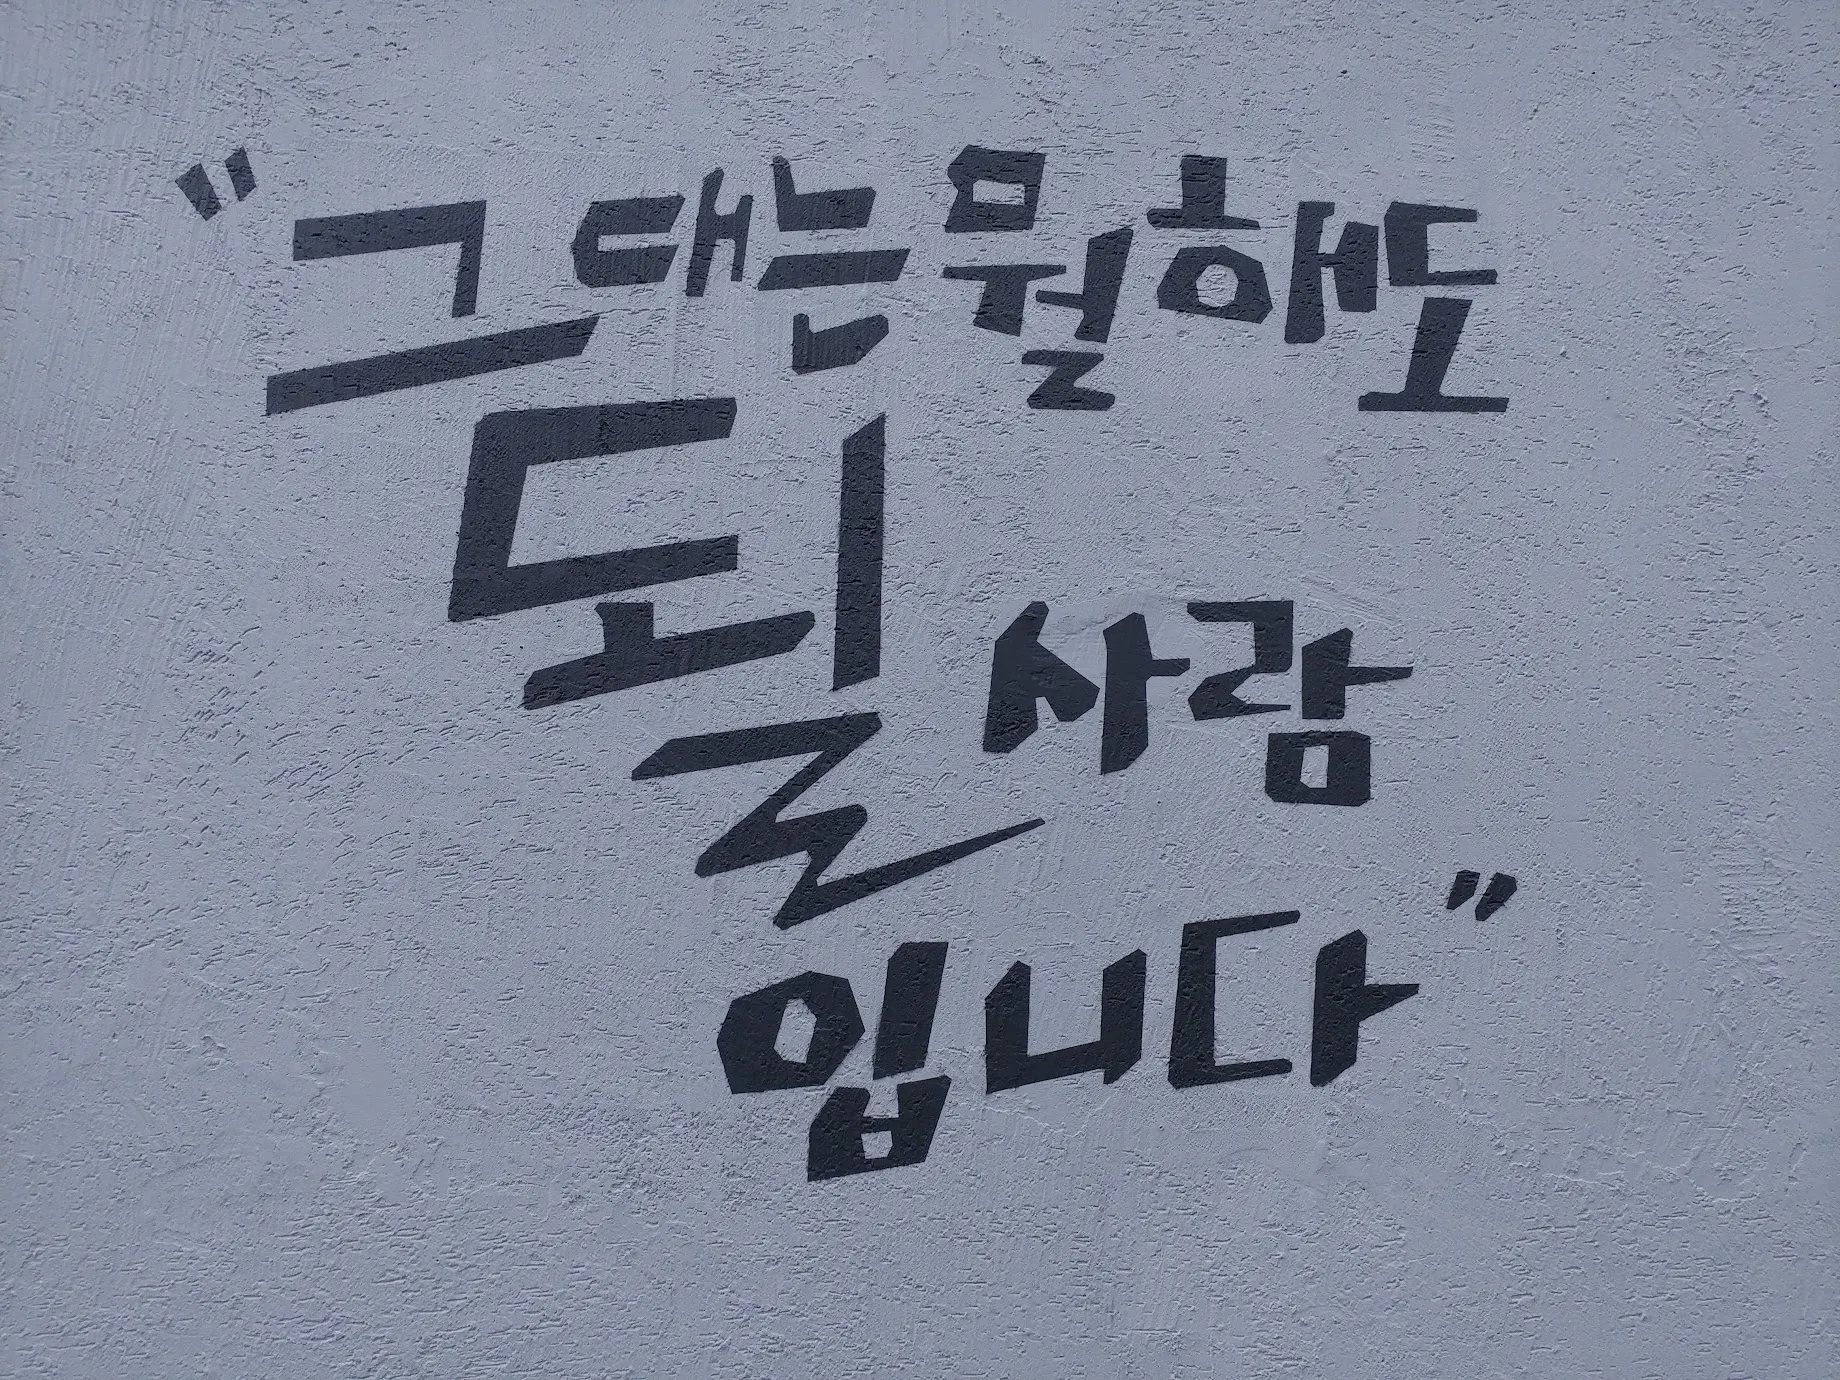 "그대는 뭘해도
될 사람
입니다"